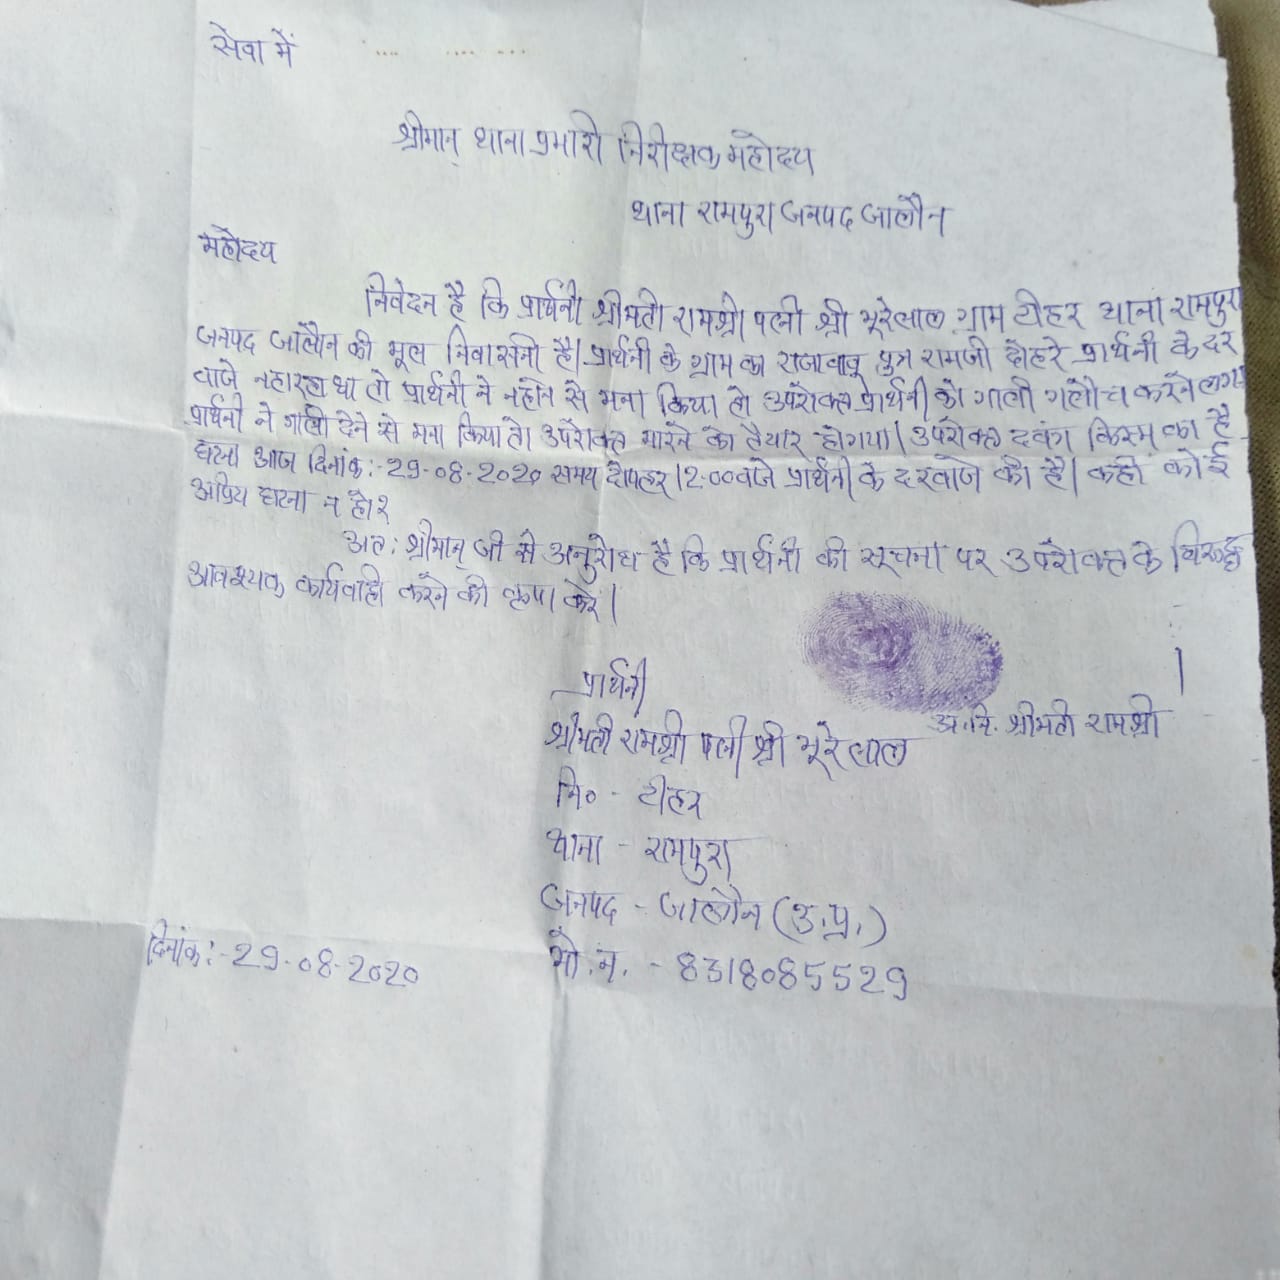 सेवा में
श्रीमान् थाना प्रभारी निरीक्षक महोदय
थाना रामपुरा जनपद जालौन
महोदय
निवेदन है कि प्रार्थिनी श्रीमती रामश्री पत्नी श्री भूरेलाल ग्राम टीहर थाना रामपुरा
जनपद जालौन की मूल निवासनी है। प्रार्थनी के ग्राम का राजाबाबू पुत्र रामजी दोहरे प्रार्थनी के दर
वाजे नहा रहा था तो प्रार्थनी ने नहाने से मना किया तो उपरोक्त प्रार्थनी को गाली गलौच करने लगा
प्रार्थनी ने गाली देने से मना किया तो उपरोक्त मारने को तैयार होगया। उपरोक्त दबंग किस्म का है
घटना आज दिनांक:-29-08-2020 समय दोपहर 12:00 बजे प्रार्थनी के दरवाजे की है। कही कोई
अप्रिय घटना न हो?
अतः श्रीमान् जी से अनुरोध है कि प्रार्थनी की सूचना पर उपरोक्त के विरूद्ध
आवश्यक कार्यवाही करने की कृपा करें।
प्रार्थनी
अ.नि. श्रीमती रामश्री
श्रीमती रामश्री पत्नी श्री भूरेलाल
नि० - टीहर
थाना - रामपुरा
जनपद - जालौन (उ.प्र.)
मो.न. - 8318085529
दिनांक:-29-08-2020